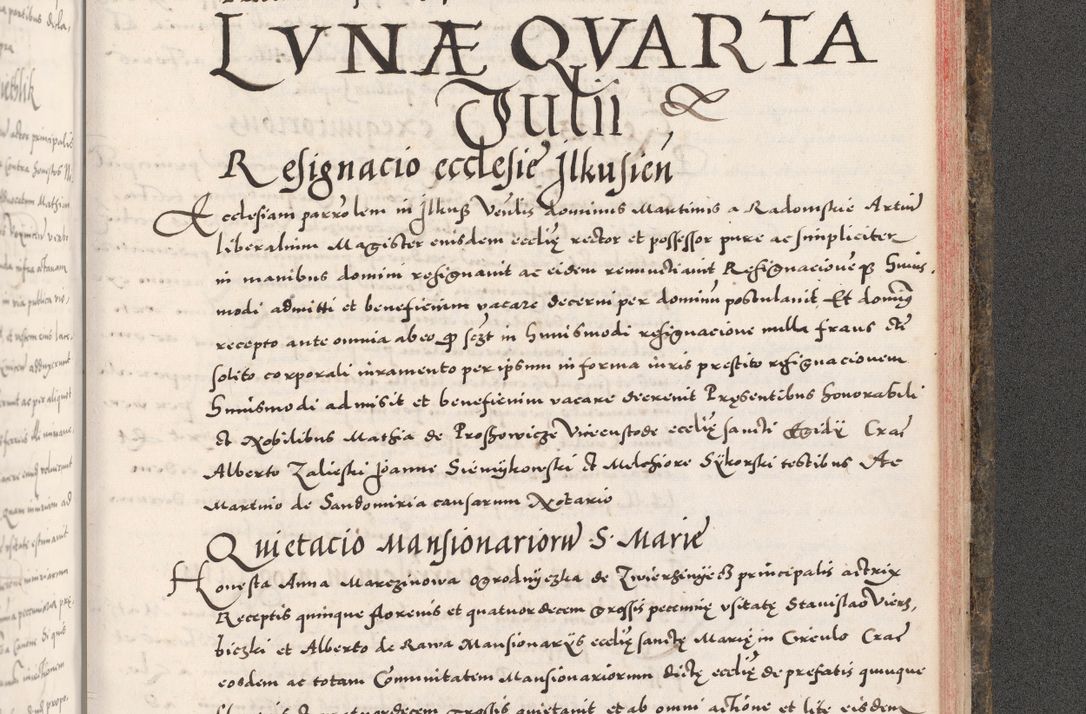 LVNÆ QVARTA
Julii
Resignacio ecclesie Jlkusien
Ecclesiam parrolem in Jlkusz Venlis dominus Martinus a Radomskie Artium
liberalium Magister eiusdem ecclie rector et possessor pure ac simpliciter
in manibus domini resignauit ac eidem renunctiauit Resignacionemque huius,
modi admitti et beneficium vacare decerni per dominum postulauit Et dominus
recepto ante omnia ab eo quod scilicet in huiusmodi resignacione nulla fraus etc
solito corporali iuramento per ipsum in forma iuris prestito resignacionem
huiusmodi admisit et beneficium vacare decreuit Presentibus honorabili
et Nobilibus Mathia de Proszowicze Vicecustode ecclie sancti Egidij Crac
Alberto Zalieski Joanne Siemykowski et Melchiore Sykorski testibus Ac
Martino de Sandomiria causarum Notario
Quietacio Mansionariorum S. Marie
Honesta Anna Marczinowa Ogrodnyczka de Zwierzinyecz principalis actrix
Receptis quinque florenis et quatuordecem grossis pecunię vsitatę Stanislao Viersz,
biczki et Alberto de Rawa Mansionarijs ecclię sanctę Marię in Circulo Crac
eosdem ac totam Communitatem Mansionariorum dictę ecclię de prefatis quinque
florenis et quatuordecem grossis quietauit et ab omni actione et lite eisdem